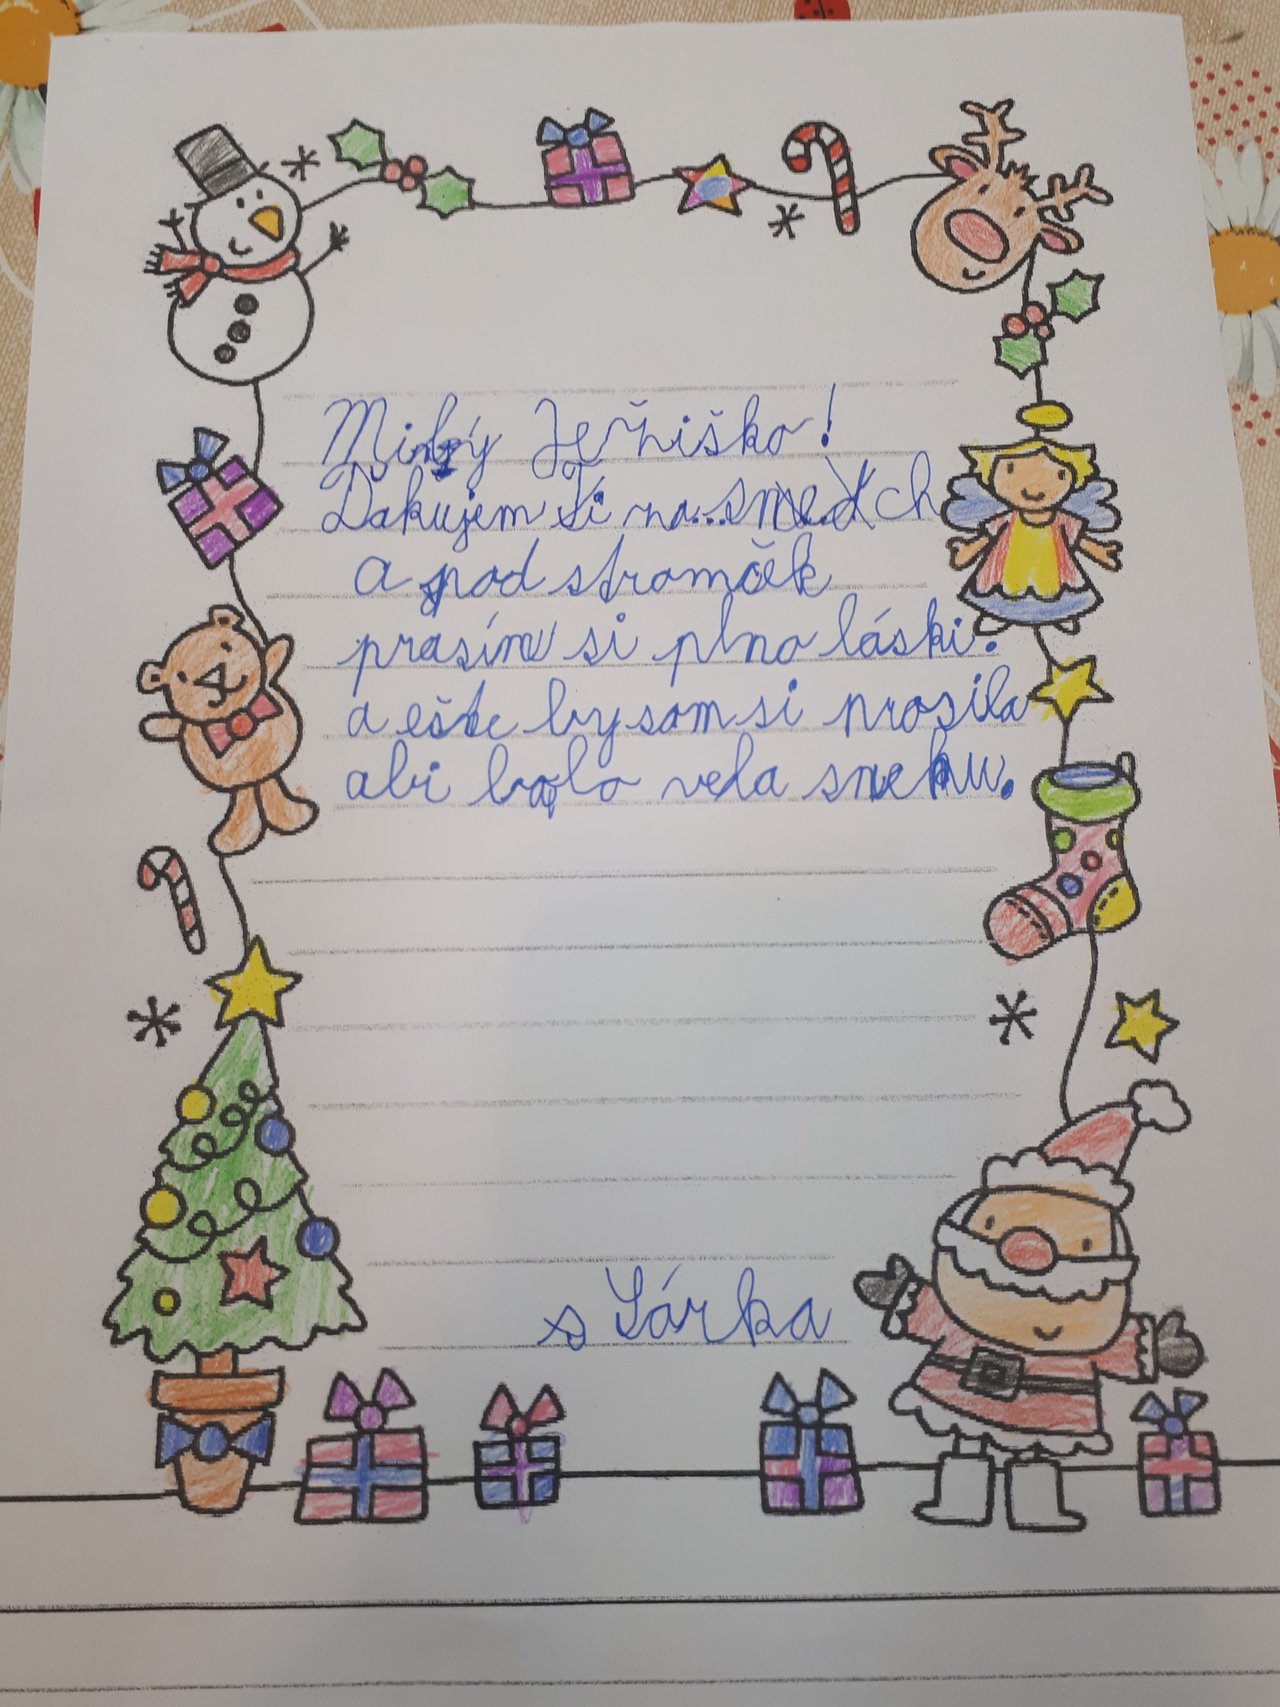 Milý Ježiško!
Ďakujem Ti na smech
a pod stromček
prasím si plno láski.
a ešte by som si prosila
abi bolo vela snehu.
s Sárka